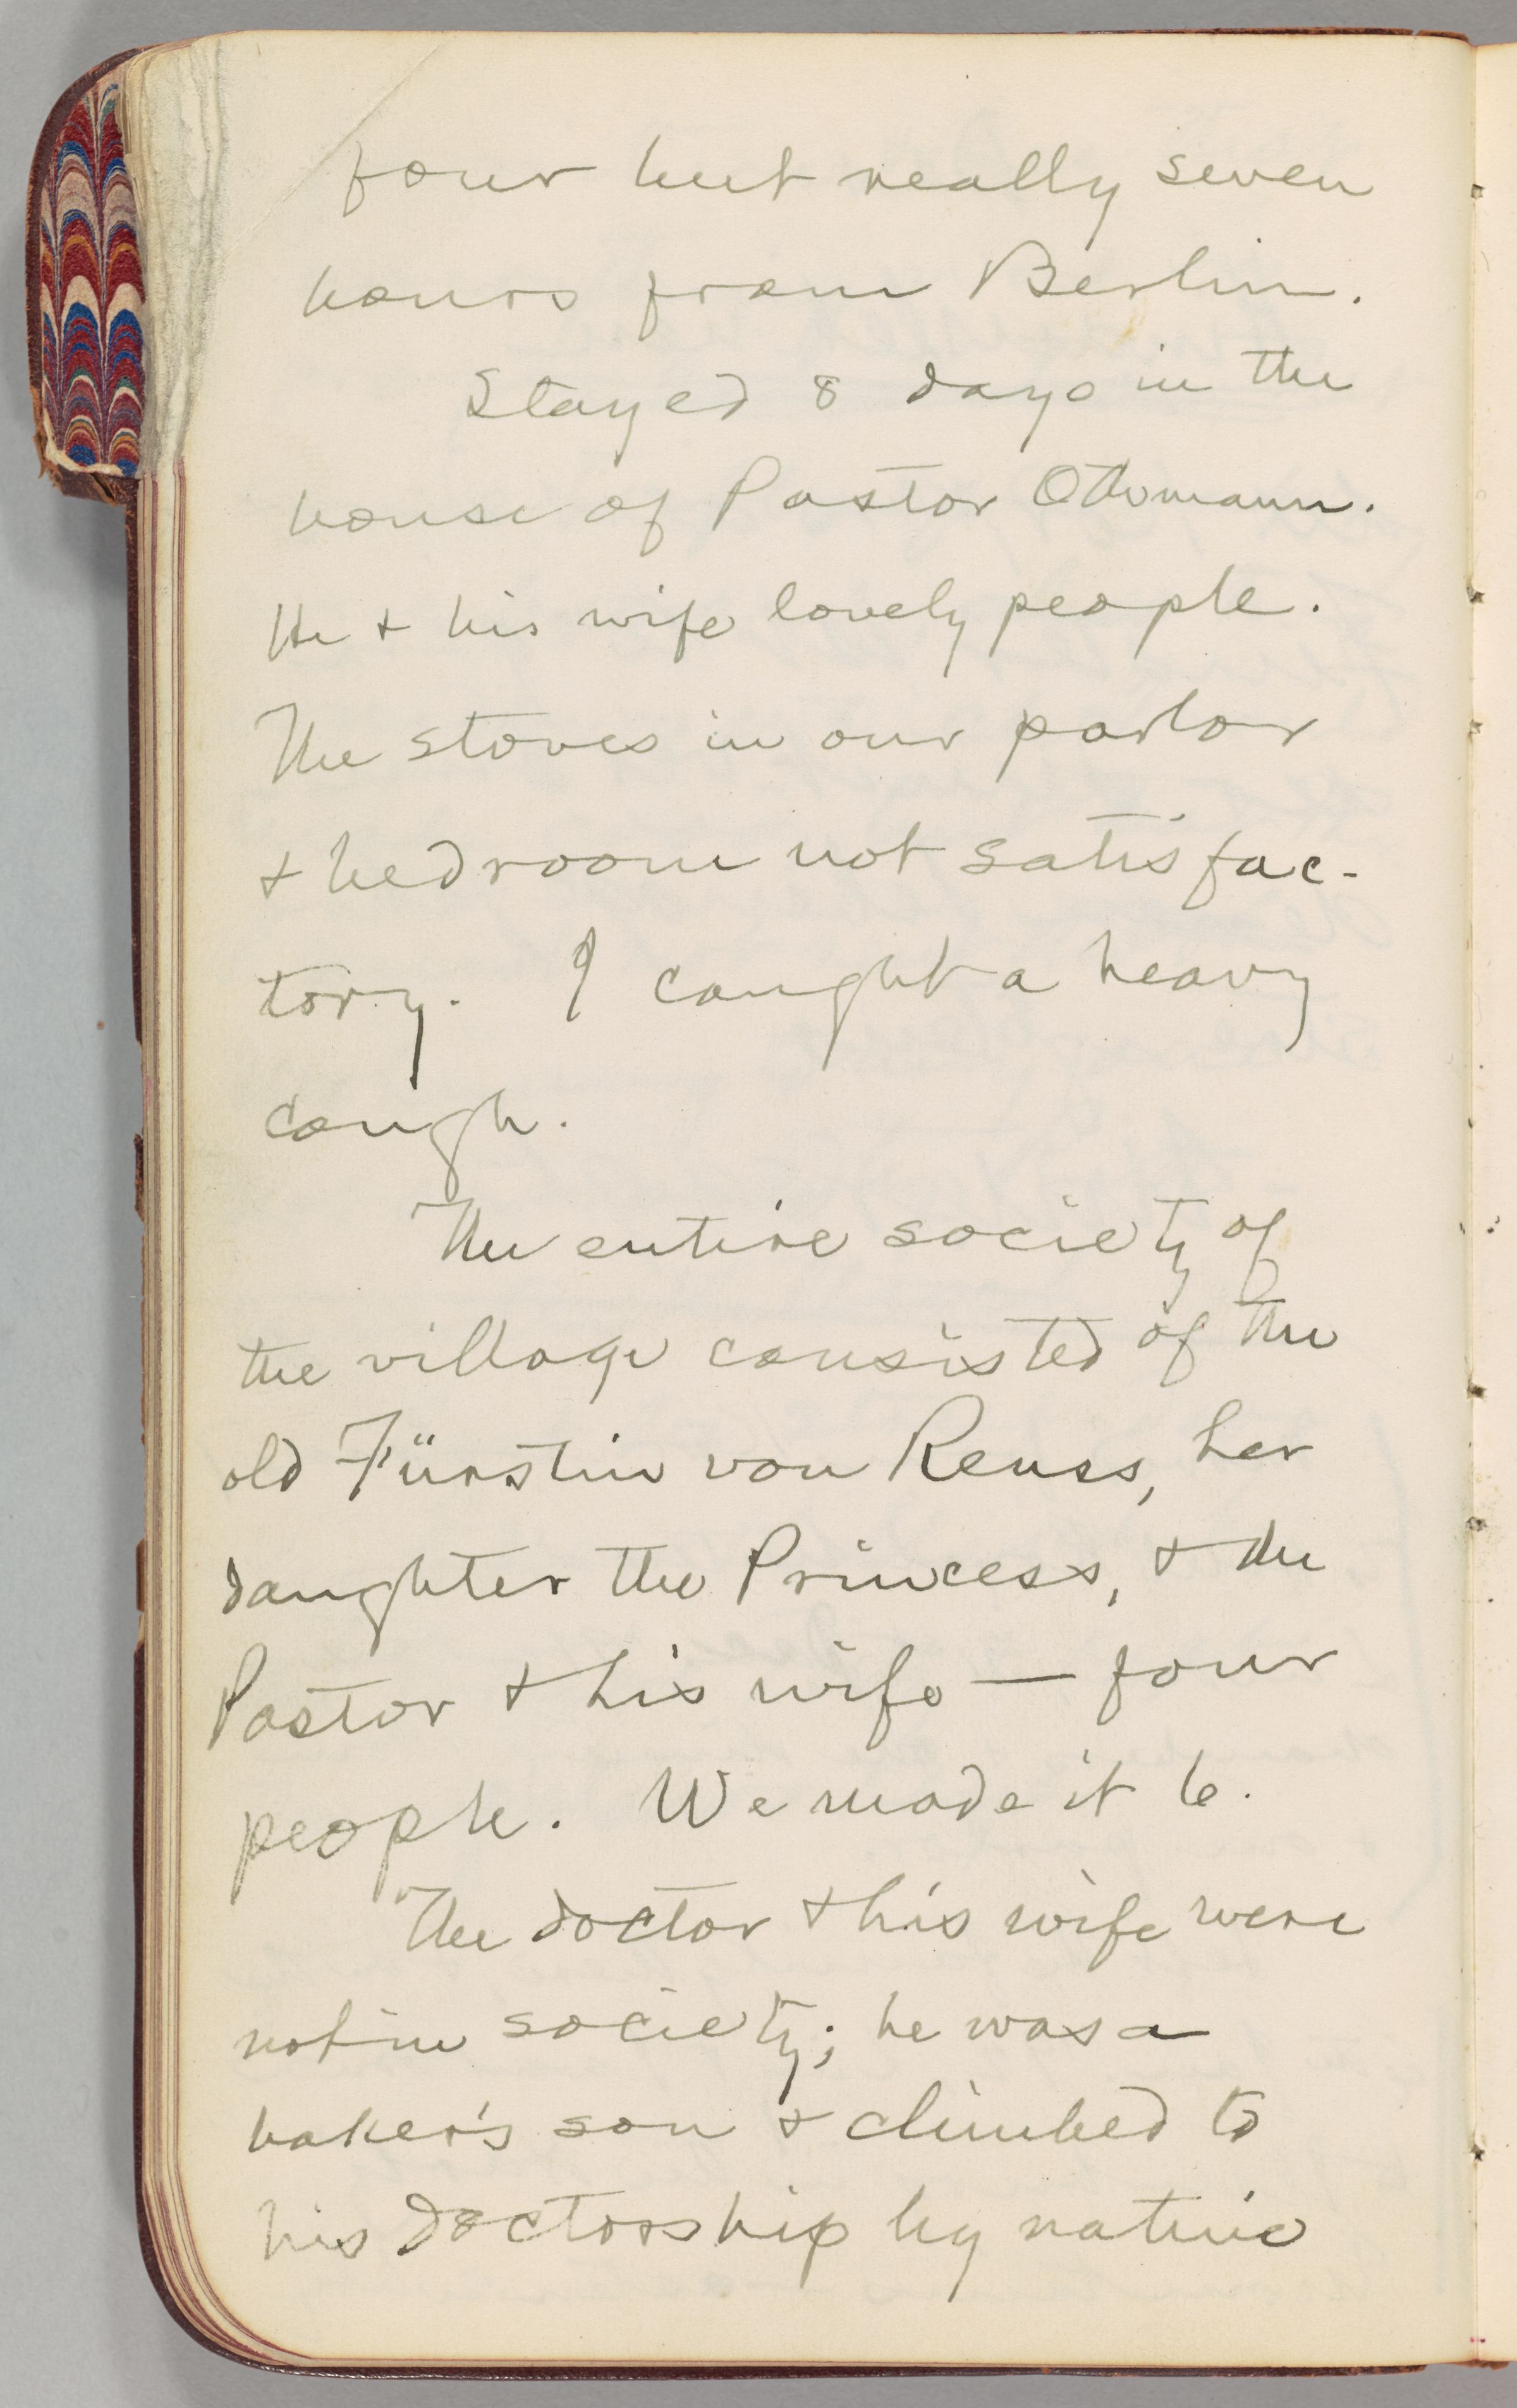 four but really seven
hours from Berlin.
Stayed 8 days in the
house of Pastor Othmann.
He + his wife lovely people.
The stoves in our parlor
+ bedroom not satisfac-
tory. I caught a heavy
cough.
The entire society of
the village consisted of the
old Fürstin von Reuss, her
daughter the Princess, + the
Pastor + his wife — four
people. We made it 6.
The doctor + his wife were
not in society; he was a
baker's son + climbed to
his doctorship by native